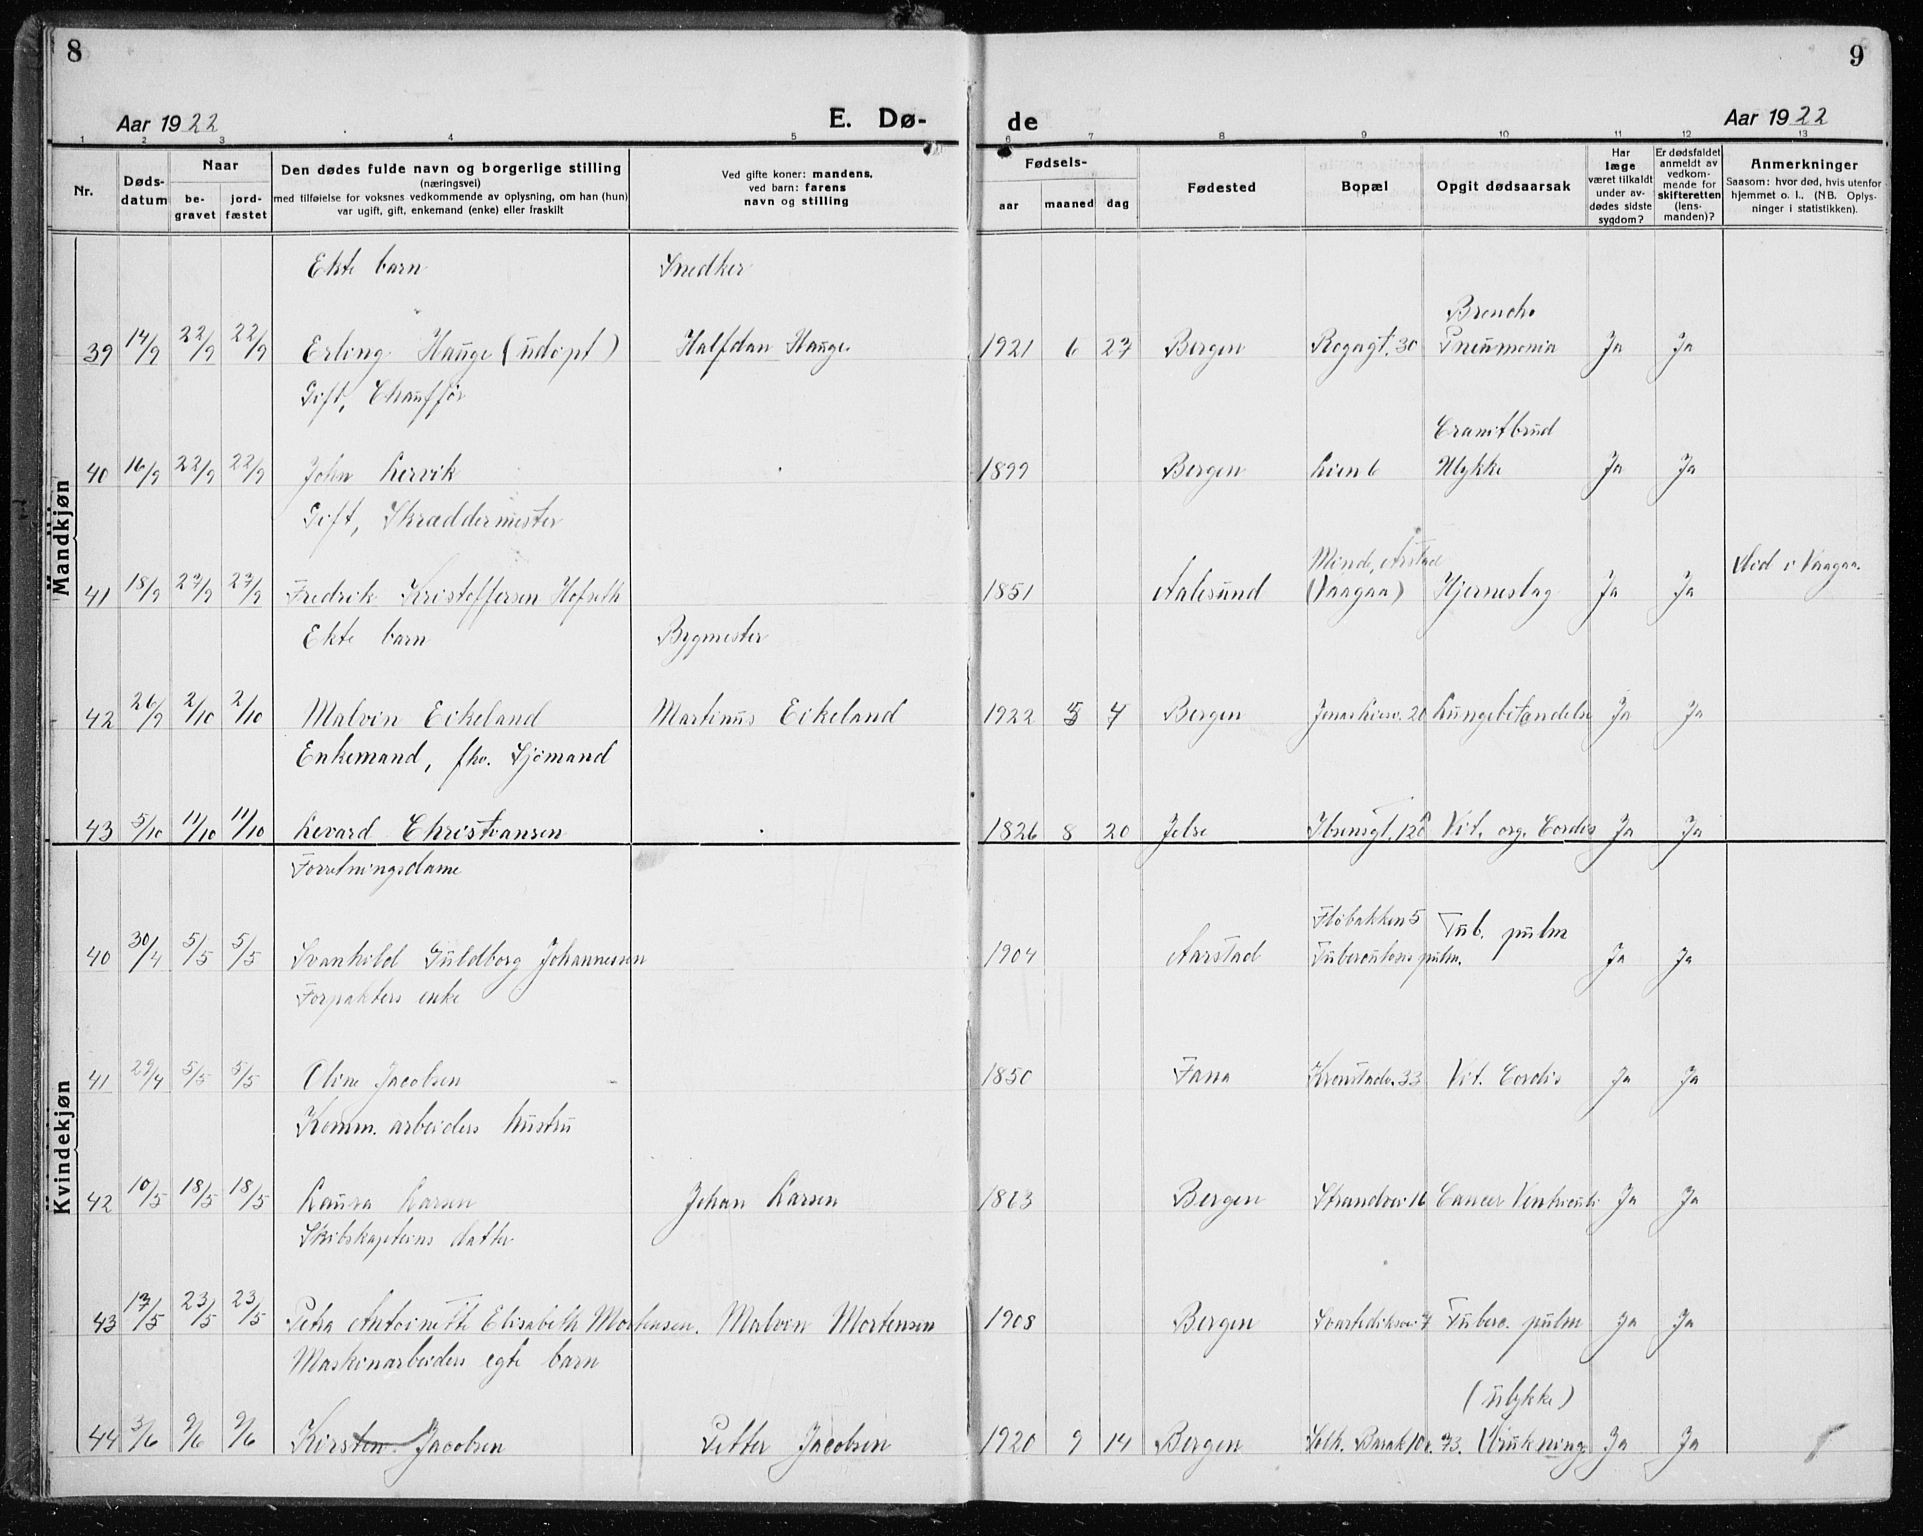 8
9
Aar 1922
E. Dø-
de
Aar 1922
1 2 3 4 5 6 7 8 9 10 11 12 13
Nr.
Døds-
datum
Naar
be-
gravet
jord-
fæstet
Den dødes fulde navn og borgerlige stilling
(næringsvei)
med tilføielse for voksnes vedkommende av oplysning, om han (hun)
var ugift, gift, enkemand (enke) eller fraskilt
Ved gifte koner: mandens,
ved barn: farens
navn og stilling
Fødsels-
aar
maaned
dag
Fødested
Bopæl
Opgit dødsaarsak
Har
læge
været tilkaldt
under av-
dødes sidste
sygdom?
Er dødsfaldet
anmeldt av
vedkom-
mende for
skifteretten
(lens-
manden)?
Anmerkninger
Saasom: hvor død, hvis utenfor
hjemmet o. l., (NB. Oplys-
ninger i statistikken).
Mandkjøn
Ekte barn Snedker
Broncho
39 14/9 22/9 22/9 Erling Hauge (udøpt) Halfdan Hauge 1921 6 27 Bergen 30 Pneumonia Ja Ja
Gift, Chauffør
40 16/9 22/9 22/9 John Lervik 1899 Bergen Lien 6 Ulykke Ja Ja
Gift, Skræddermester
Minde, Arstad
Død i Vaagaa.
41 18/9 27/9 27/9 Fredrik Kristoffersen Hofseth 1851 Aalesund (Vaagaa) Hjerneslag Ja Ja
Ekte barn Bygmester
42 26/9 2/10 2/10 Malvin Eikeland Martinus Eikeland 1922 4 Bergen Jonas Liesv. 20 Lungebetændelse Ja Ja
Enkemand, fhv. Sjømand
43 5/10 11/10 11/10 Levard Christiansen 1826 8 20 Jelse Ibsensgt. Vit. org. Cordis Ja Ja
Kvindekjøn
Forretningsdame
Fløbakken 5 Tub. pulm
40 30/4 5/5 5/5 Svanhild Guldborg Johannesen 1904 Aarstad Tuberculosis pulm. Ja Ja
Forpakters enke
41 29/4 5/5 5/5 Oline Jacobsen 1850 Fana Kronstadv. 33 Vit. Cordis Ja Ja
Komm. arbeiders hustru
42 10/5 18/5 18/5 Laura Larsen Johan Larsen 1863 Bergen Strandvei 16 Cancer Ventriculi Ja Ja
Skibskapteins datter
43 17/5 23/5 23/5 Petra Antoinette Elisabeth Mortensen. Malvin Mortensen 1908 Bergen Svartediksvei 7 Tuberc. pulm Ja Ja
Maskinarbeiders egte barn
(ulykke)
44 3/6 9/6 9/6 Kirsten Jacobsen Petter Jacobsen 1920 9 14 Bergen Solh. Barak 10 v. 73. Drukning Ja Ja